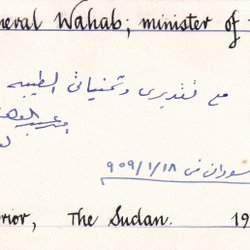 neral Wahab; minister of
مع تقديرى وتمنياتى الطيبه
سودان فى ٩٠٩/١/١٨
rior, The Sudan. 19